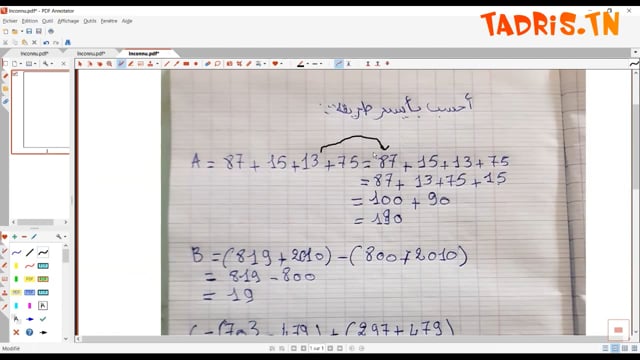 Inconnu.pdf* - PDF Annotator
TADRIS.TN
Fichier Edition Outil Insertion Affichage Outils Fenêtre Aide
Inconnu.pdf* Inconnu.pdf* Inconnu.pdf*
أحسب بأيسر طريقة:
A = 87 + 15 + 13 + 75 = 87 + 15 + 13 + 75
= 87 + 13 + 75 + 15
= 100 + 90
= 190
B = (819 + 2010) - (800 + 2010)
= 819 - 800
= 19
Modifié
1 sur 1